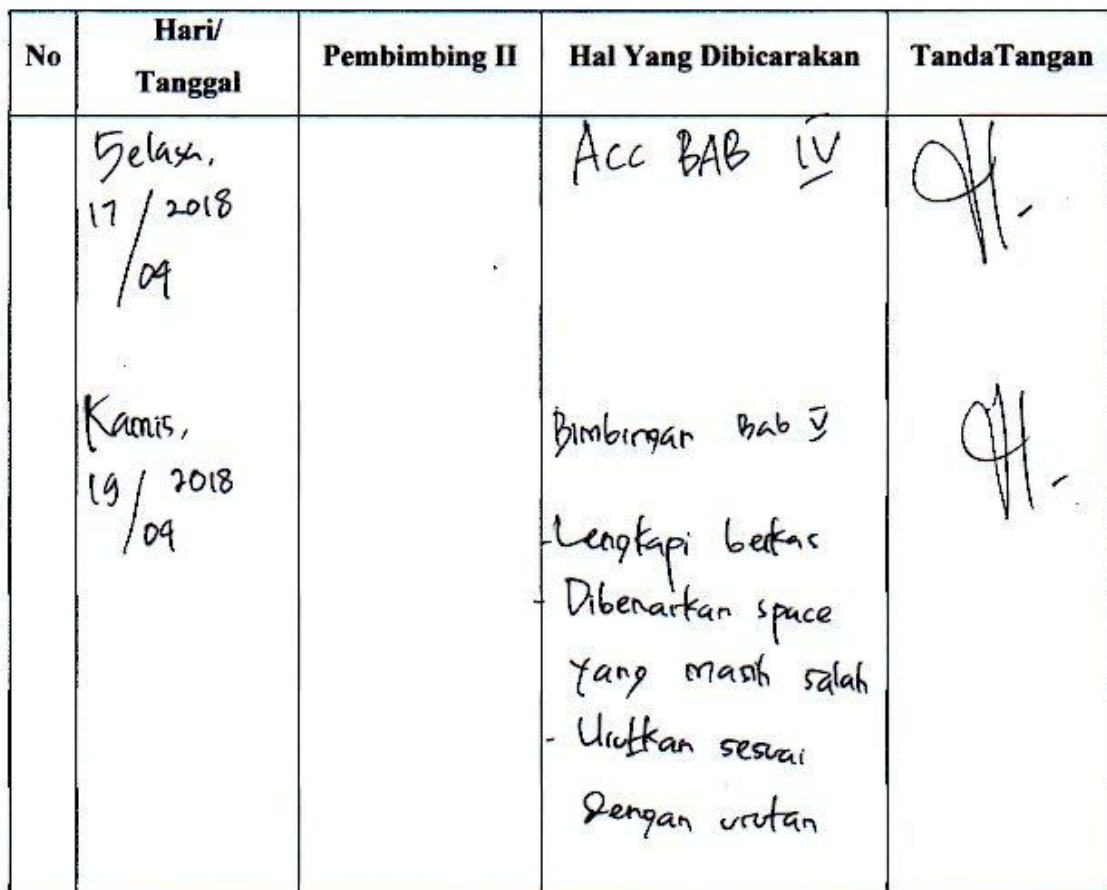 No Hari/ Tanggal Pembimbing II Hal Yang Dibicarakan TandaTangan
Selasa, Acc BAB IV
17/2018
/04
Kamis, Bimbingan Bab V
19/2018
/04
-Lengkapi berkas
- Dibenarkan space
yang masih salah
- Urutkan sesuai
dengan urutan